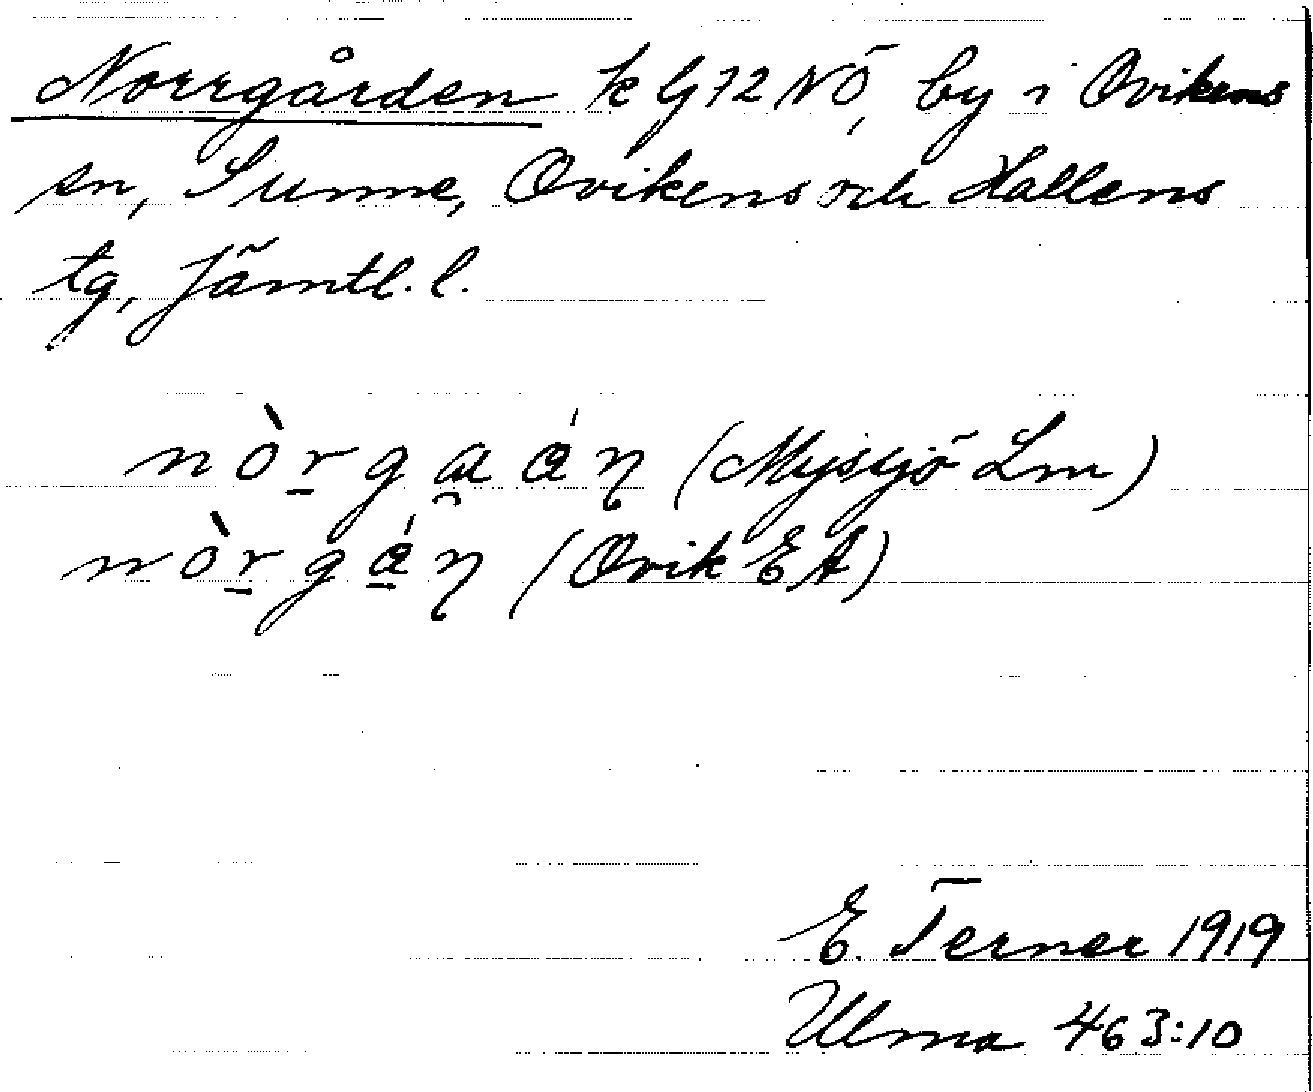 Norrgården k G72NÖ, by i Ovikens
sn, Sunne, Ovikens och Hallens
tg, Jämtl. l.
nòrgaán (Mysjö Lm)
nòrgán (Ovik EA)
E. Terner 1919
Ulma 463:10